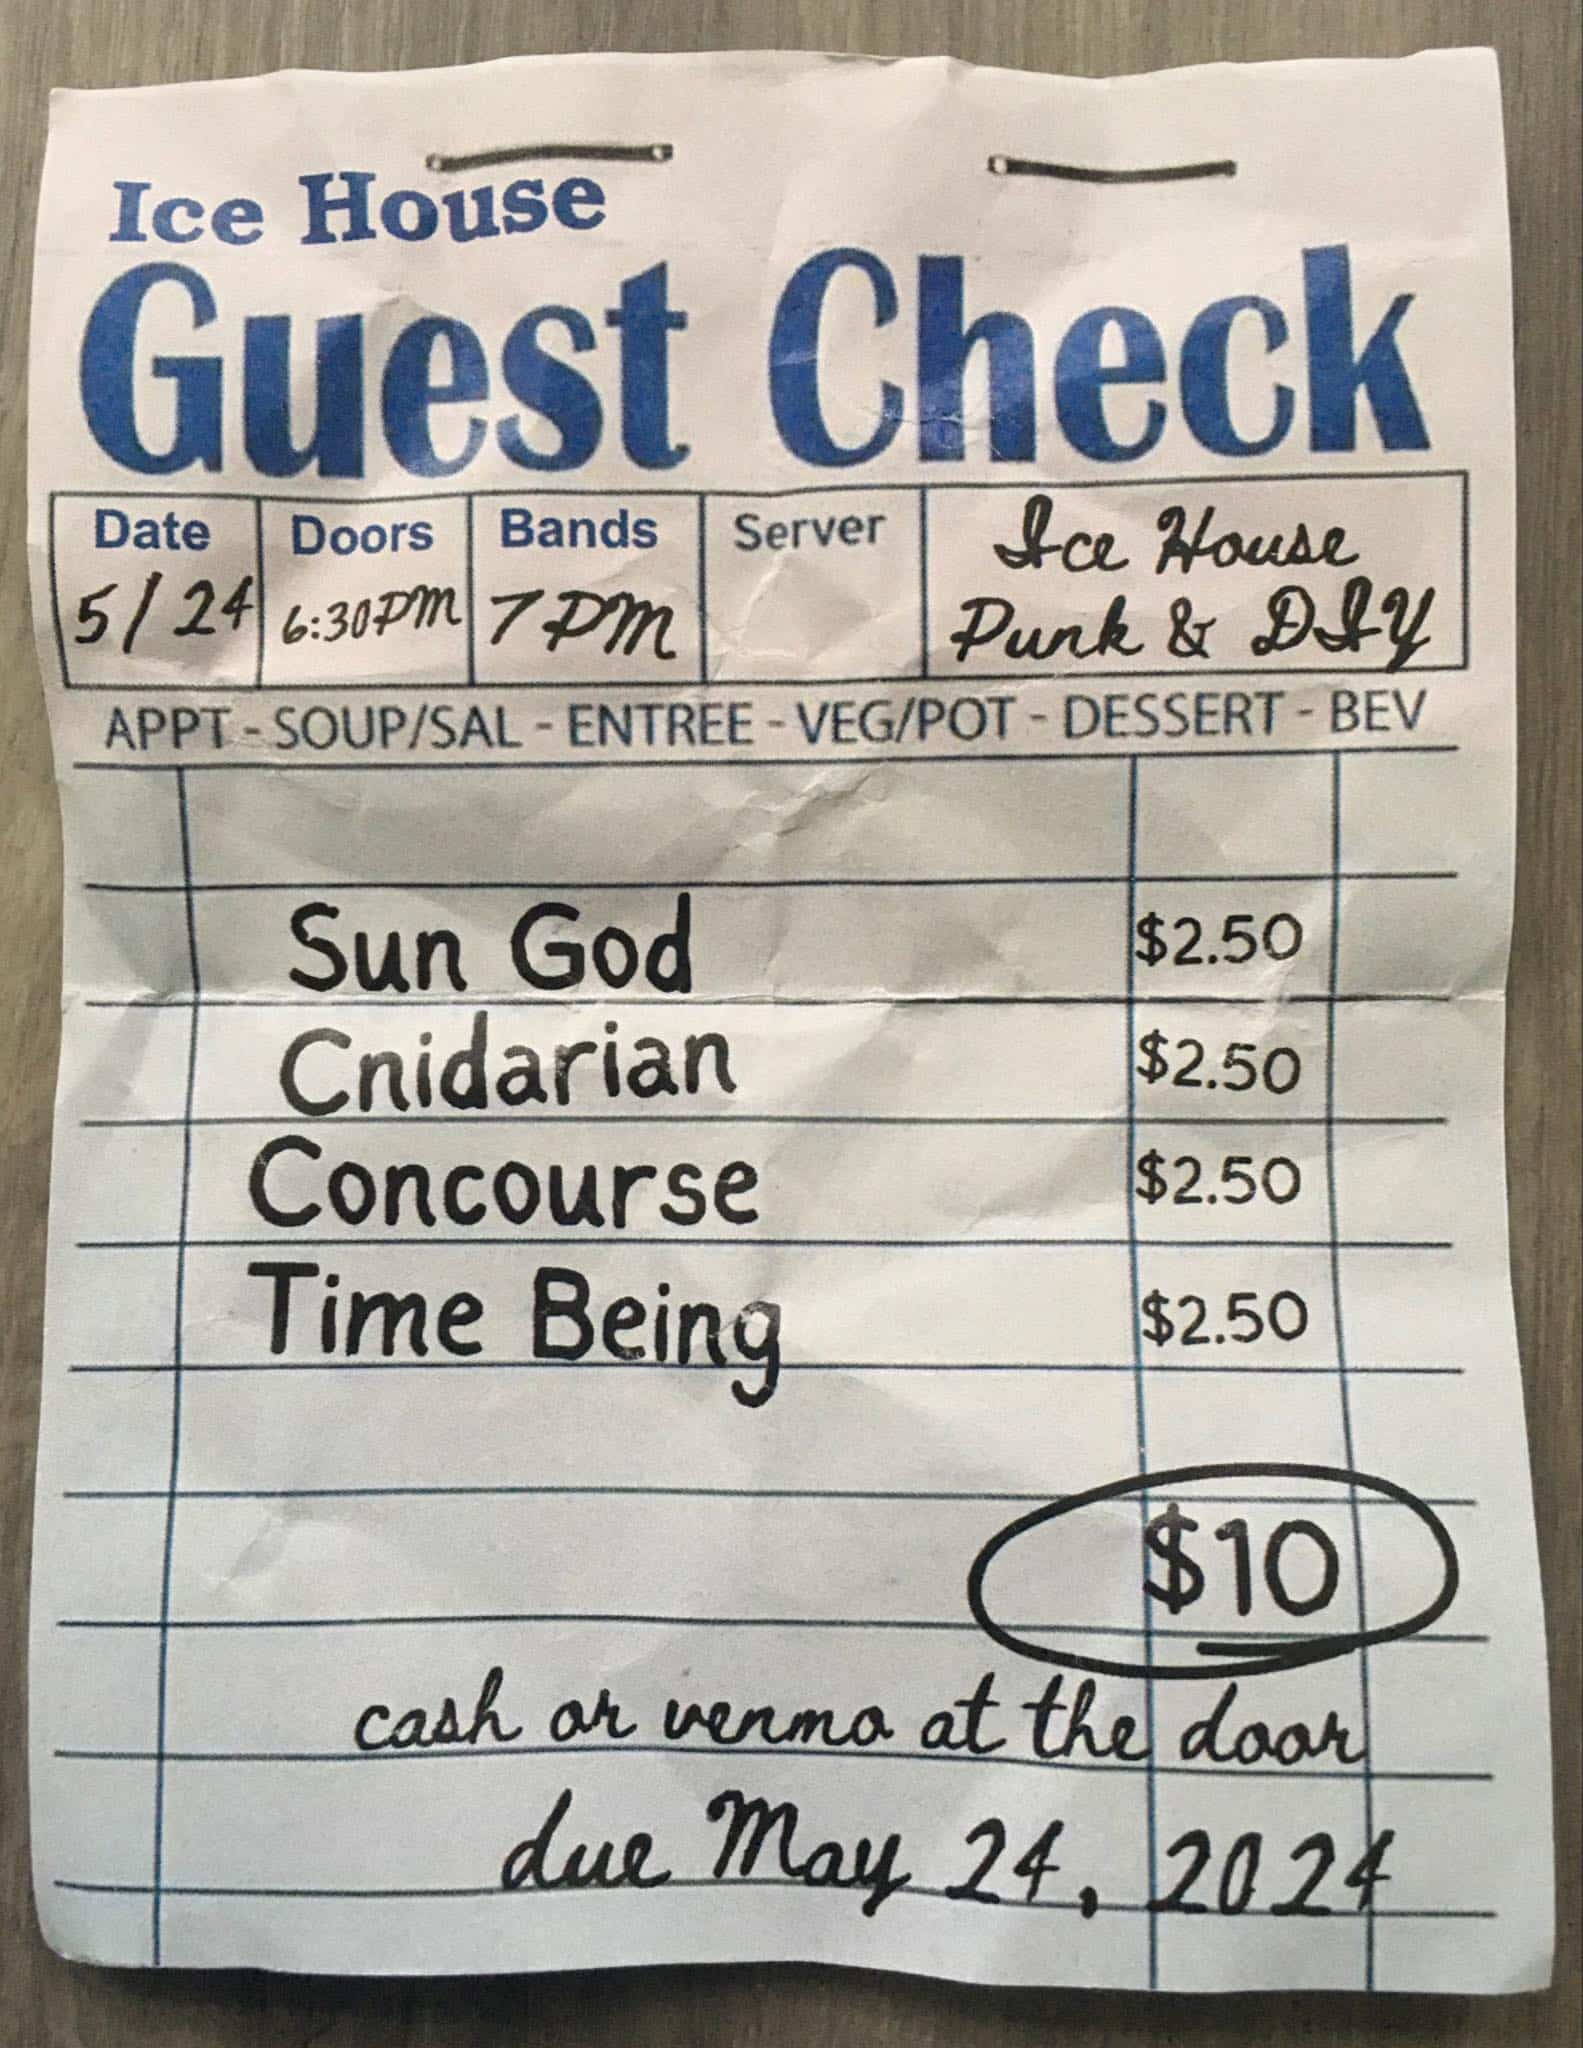 Ice House
Guest Check
Date Doors Bands Server Ice House
5/24 6:30PM 7PM Punk & DIY
APPT - SOUP/SAL - ENTREE - VEG/POT - DESSERT - BEV
Sun God $2.50
Cnidarian $2.50
Concourse $2.50
Time Being $2.50
$10
cash or venmo at the door
due May 24, 2024